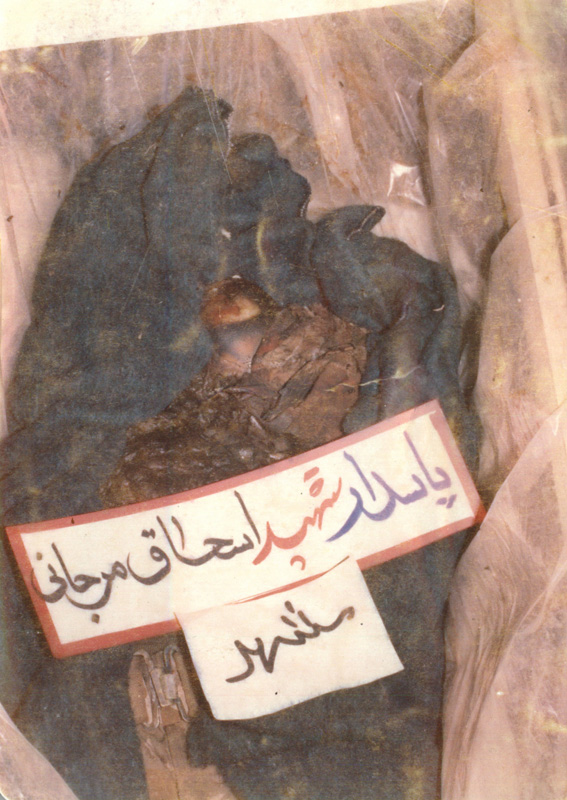 پاسدار شهید اسحاق مرجانی
مشهد